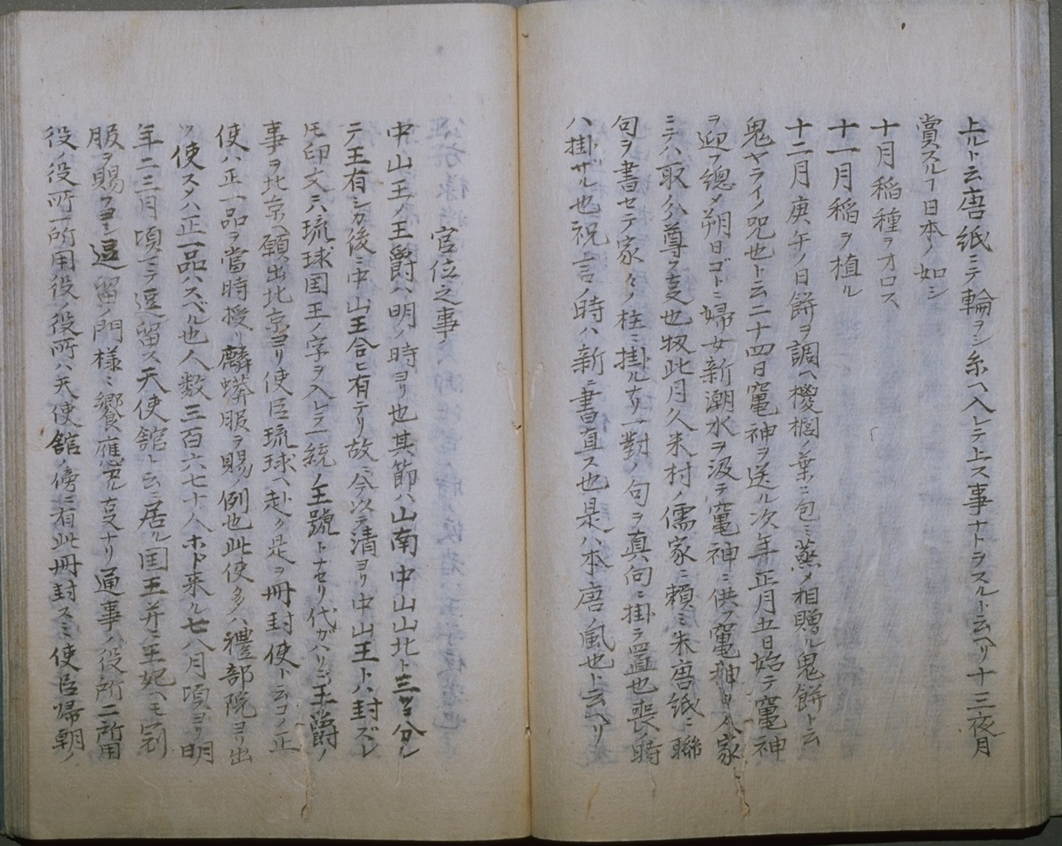 上ルト云唐紙ニテ輪ヲシ糸ヘ入レテ上ス事ナトヲスルト云ヘリ十三夜月
賞スルヿ日本ノ如シ
十月稲種ヲオロス
十一月稲ヲ植ル
十二月庚午ノ日餅ヲ調ヘ椶櫚ノ葉ニ包ミ蒸メ相贈ル鬼餅ト云
鬼ヤライノ呪也ト云二十四日竃神ヲ送ル次年正月五日始テ竃神
ヲ迎フ總メ朔日ゴトニ婦女新潮水ヲ汲テ竃神ニ供フ竃神ヲ人家
ニテハ取分ケ尊ノ支也扨此月久米村ノ儒家ニ頼ミ朱唐紙ニ聯
句ヲ書セテ家々ノ柱ニ掛ルナリ一對ノ句ヲ真向ニ掛ラ置也喪ノ時
ハ掛ザル也祝言ノ時ハ新ニ書直ス也是ハ本唐ノ風也ト云ヘリ
官位之事
中山王ノ王爵ハ明ノ時ヨリ也其節ハ山南中山山北ト三ツニ分レ
テ王有シガ後ニ中山王合セ有テリ故ニ今以テ清ヨリ中山王トハ封ズレ
モ印文ニハ琉球国王ノ字ヲ入レテ一統ノ王號トナセリ代ガハリニハ王爵ノ
事ヲ北京ヘ願出北京ヨリ使臣琉球ヘ赴ク是ヲ冊封使ト云コノ正
使ハ正一品ヲ當時授ケ麟蟒服ヲ賜ノ例也此使多ハ禮部院ヨリ出
ツ使スタハ正一品ハスベル也人数三百六七十人ホド来ル七八月頃ヨリ明
年二三月頃マテ逗留ス天使館ト云ニ居ル国王并ニ王妃ヘモ冠
服ヲ賜フヨシ逗留ノ門様々饗應アル支ナリ通事ノ役所二所用
役ノ役所一所用役ノ役所ハ天使館ノ傍ニ有此冊封スミ使臣帰朝ノ